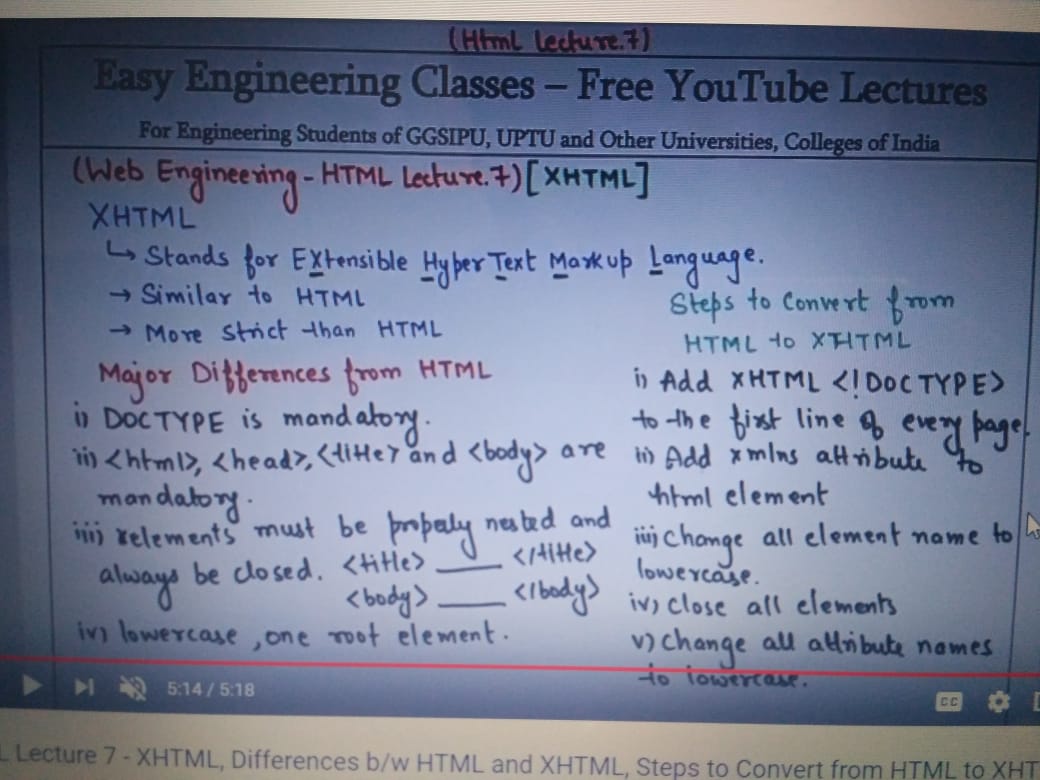 (Html Lecture.7)
Easy Engineering Classes – Free YouTube Lectures
For Engineering Students of GGSIPU, UPTU and Other Universities, Colleges of India
(Web Engineering - HTML Lecture.7) [XHTML]
XHTML
↳ Stands for EXtensible Hyper Text Markup Language.
→ Similar to HTML
→ More strict than HTML
Major Differences from HTML
i) DOCTYPE is mandatory.
ii) <html>, <head>, <title> and <body> are
mandatory.
iii) elements must be properly nested and
always be closed. <title> ____ </title>
<body> ____ </body>
iv) lowercase, one root element.
Steps to Convert from
HTML to XHTML
i) Add XHTML <!DOCTYPE>
to the first line of every page.
ii) Add xmlns attribute to
html element
iii) Change all element name to
lowercase.
iv) close all elements
v) change all attribute names
to lowercase.
5:14 / 5:18
CC
L Lecture 7 - XHTML, Differences b/w HTML and XHTML, Steps to Convert from HTML to XHT